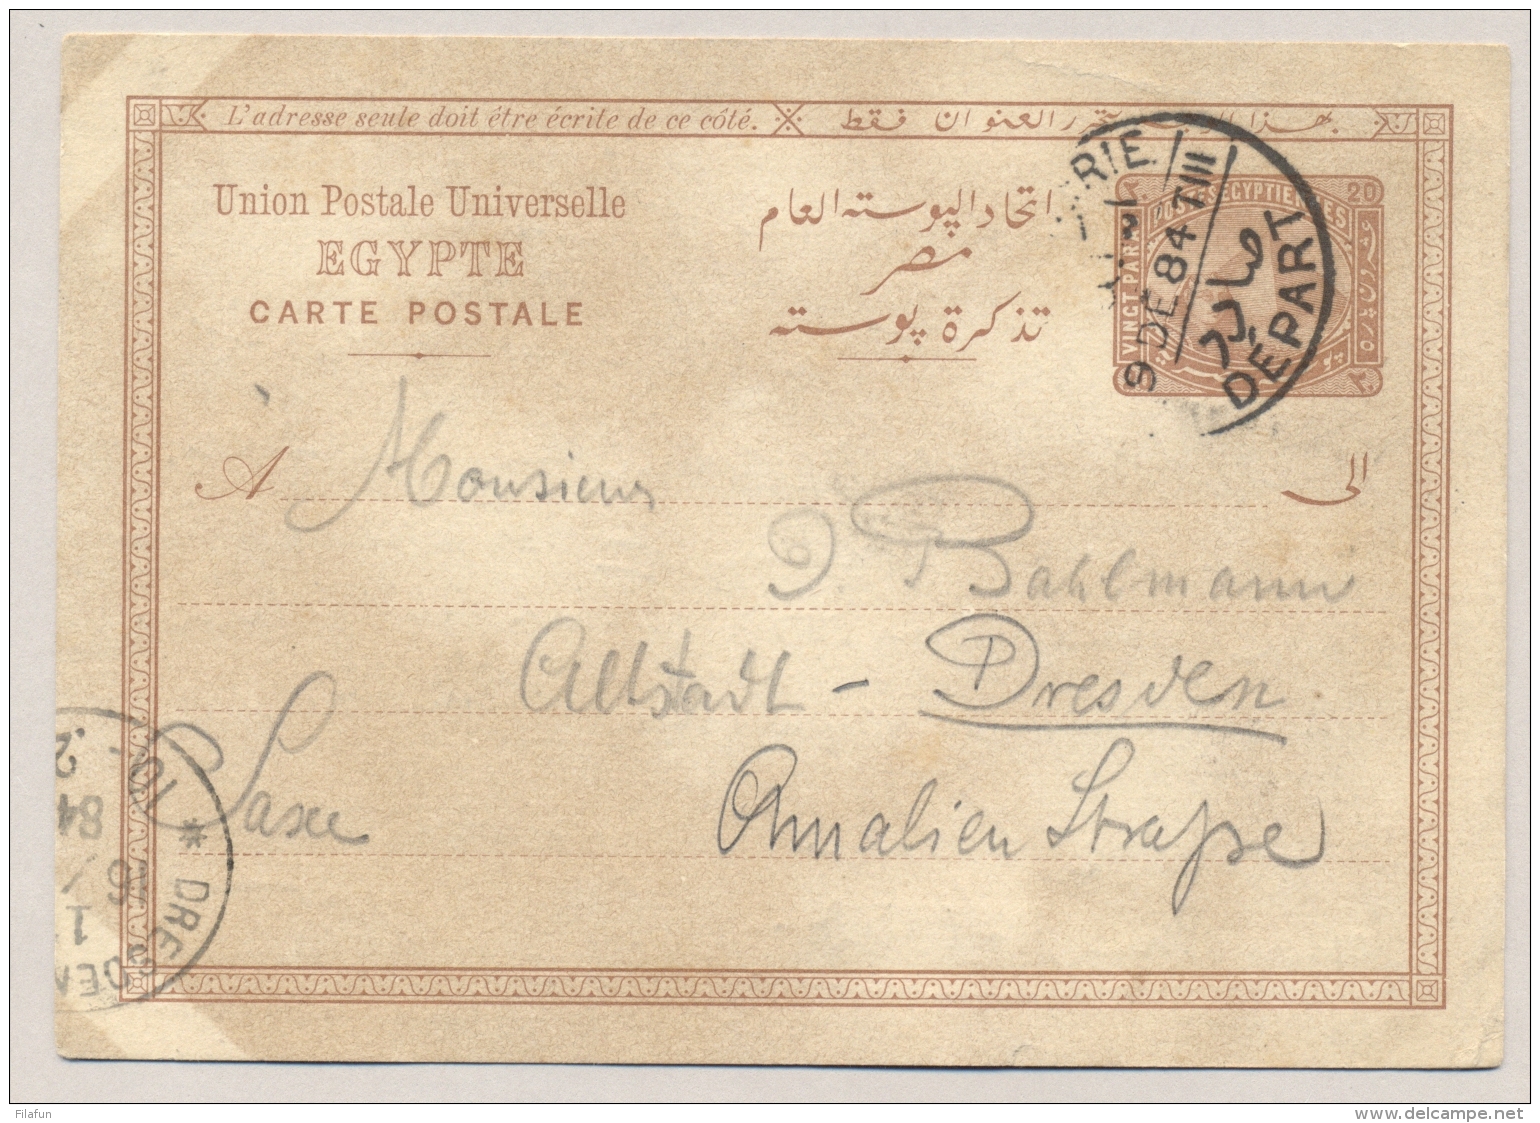 L'adresse seule doit être écrite de ce côté.
بهذا العنوان فقط
Union Postale Universelle
EGYPTE
CARTE POSTALE
اتحاد البوسته العام
مصر
تذكرة بوسته
POSTES EGYPTIENNES
20
VINGT PARA
٢٠
RIE
9 DE 84
VIII
صادر
DÉPART
A
الى
Monsieur
D. Bahlmann
Altstadt - Dresden
Saxe
Amalien Straße
* DRESDEN
84
Filafun
delcampe.net